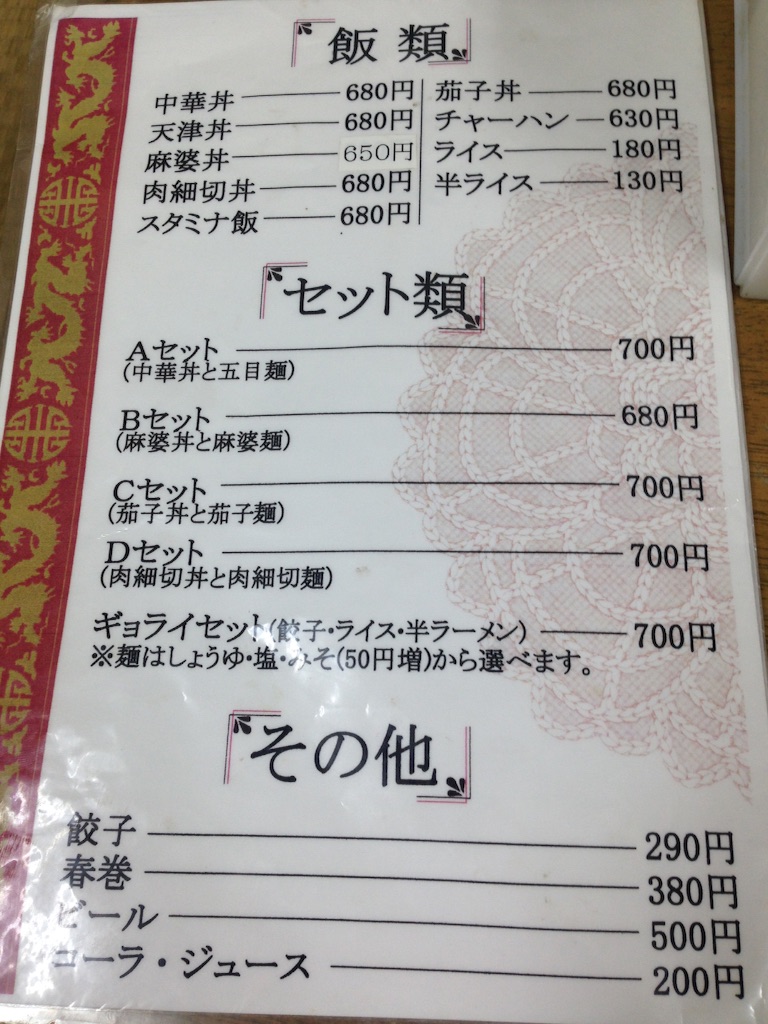 飯類
中華丼 680円
天津丼 680円
麻婆丼 650円
肉細切丼 680円
スタミナ飯 680円
茄子丼 680円
チャーハン 630円
ライス 180円
半ライス 130円
セット類
Aセット 700円
(中華丼と五目麺)
Bセット 680円
(麻婆丼と麻婆麺)
Cセット 700円
(茄子丼と茄子麺)
Dセット 700円
(肉細切丼と肉細切麺)
ギョライセット(餃子・ライス・半ラーメン) 700円
※麺はしょうゆ・塩・みそ(50円増)から選べます。
その他
餃子 290円
春巻 380円
ビール 500円
コーラ・ジュース 200円